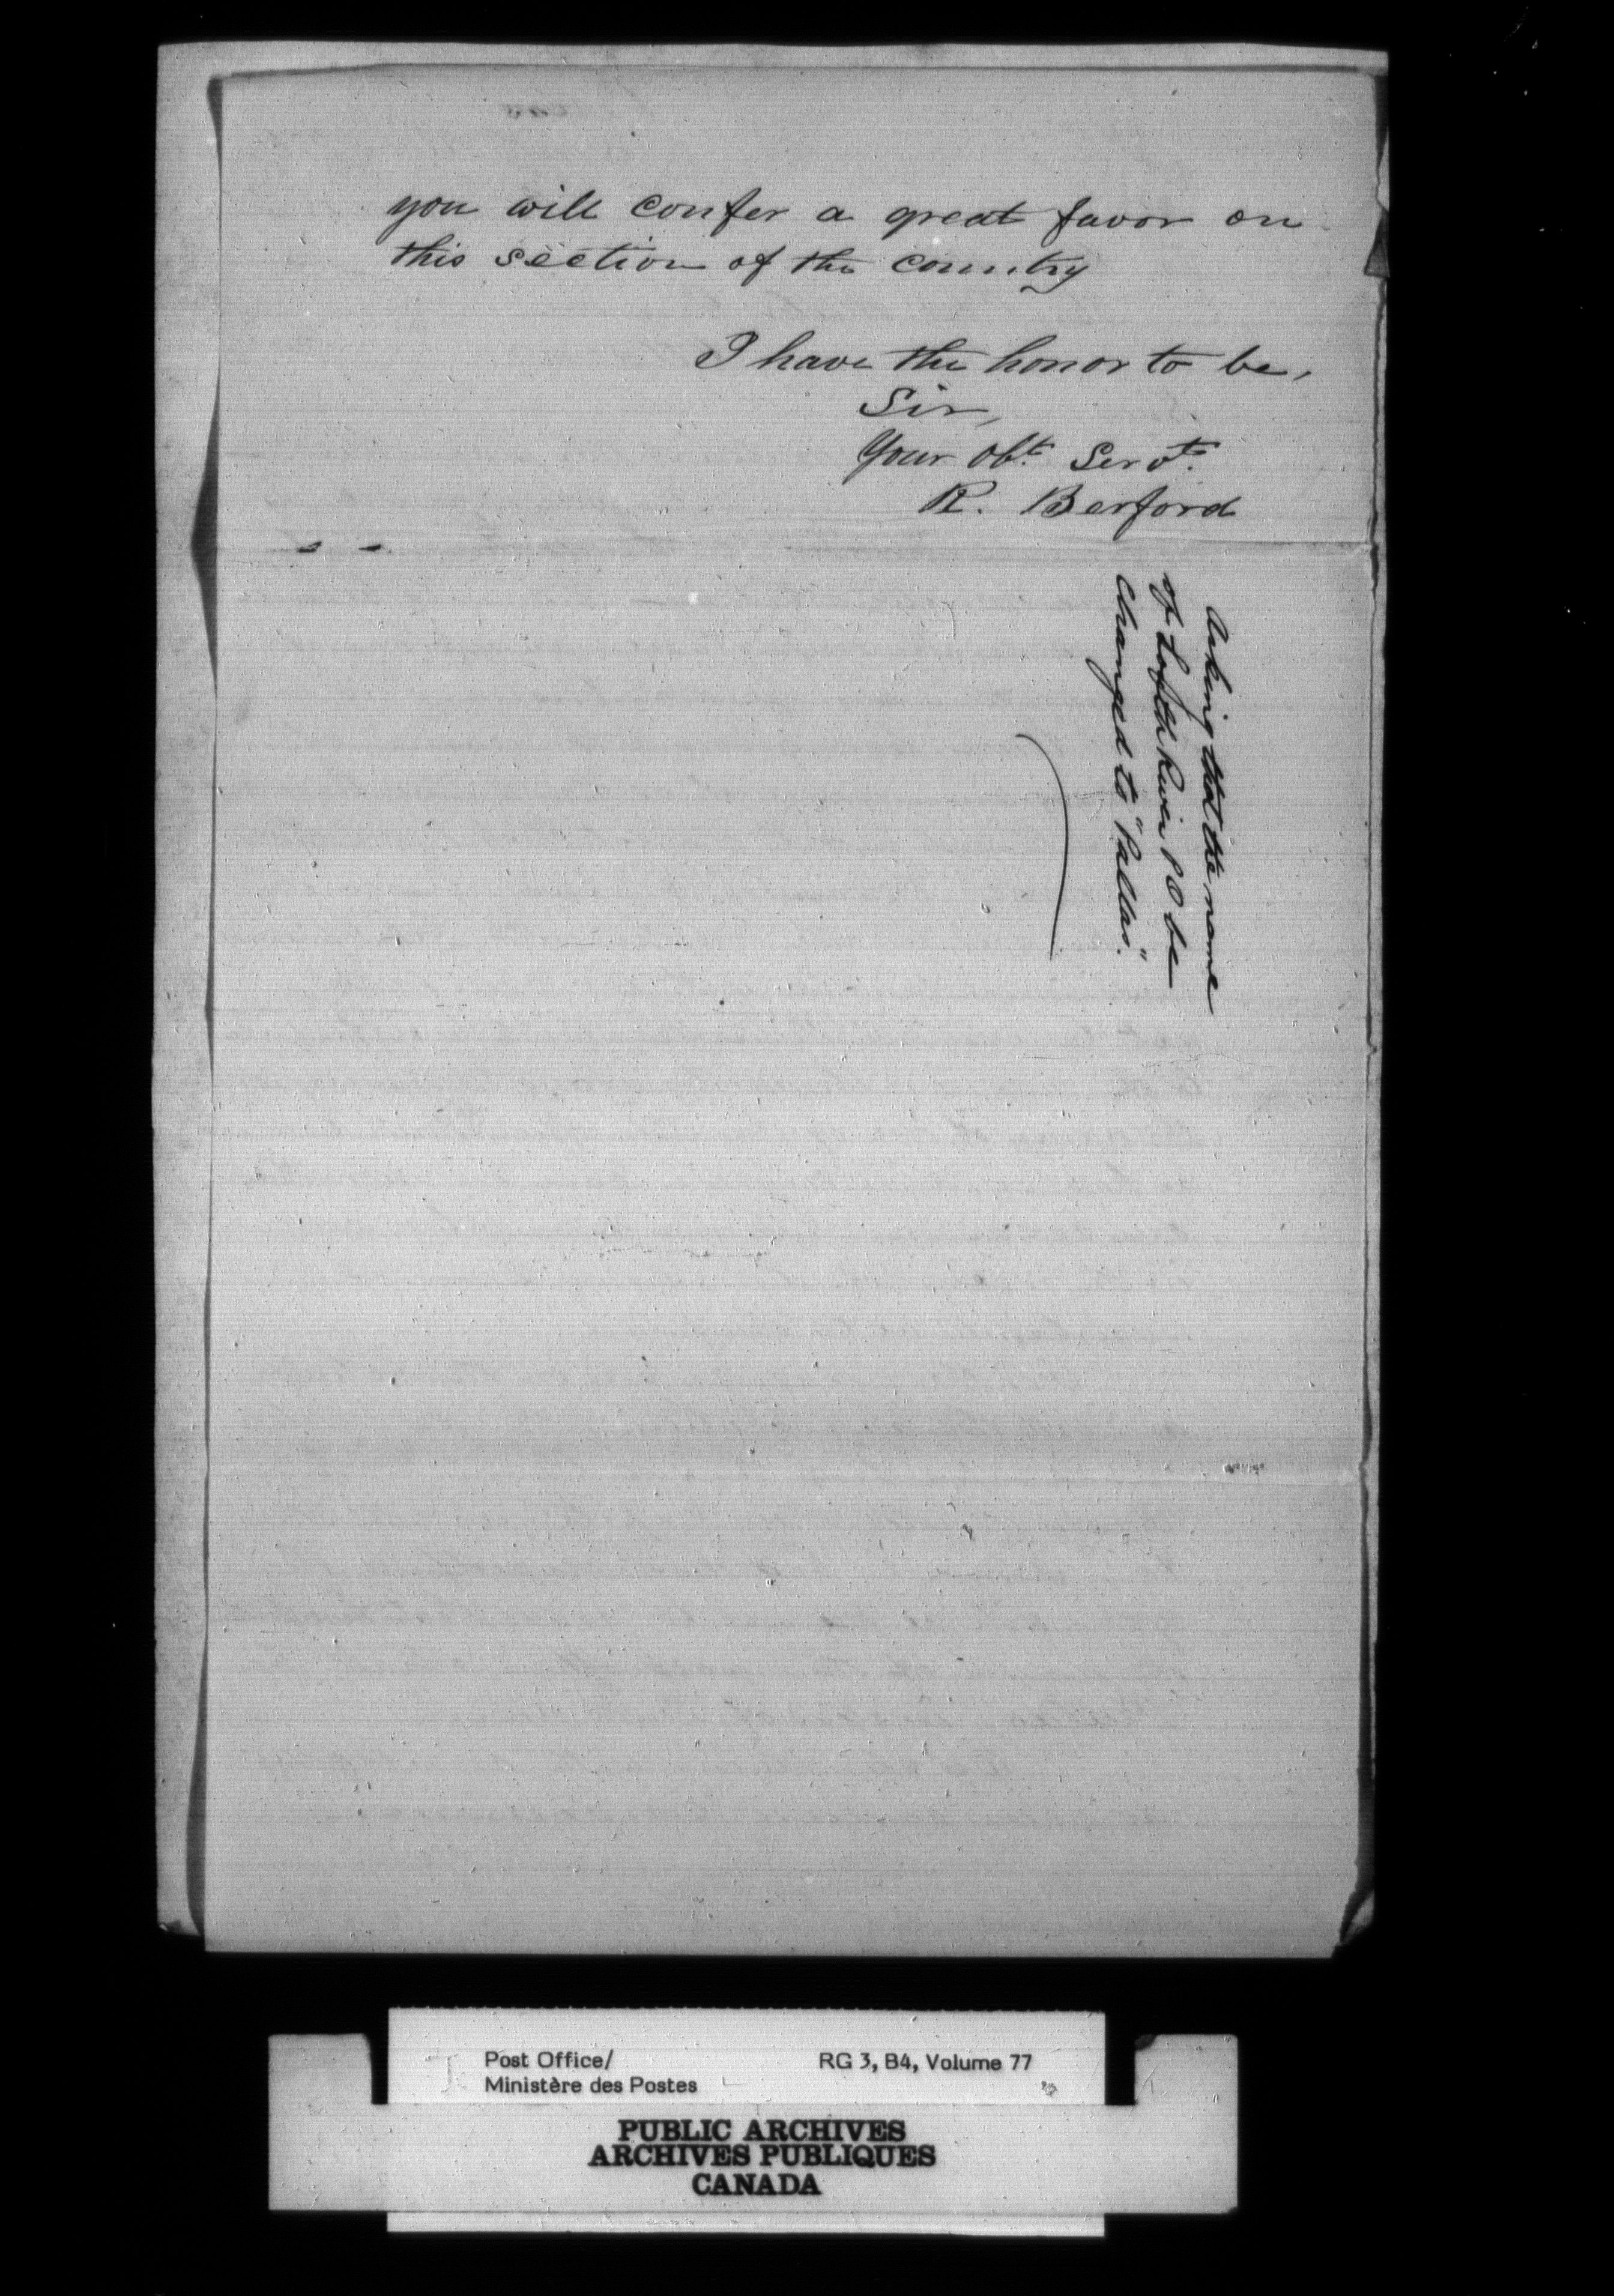 you will confer a great favor on
this section of the country
I have the honor to be,
Sir,
Your Obt. Servt.
R. Berford
Asking that the name
of River P O be
changed to "Pallas".
Post Office/
Ministère des Postes
RG 3, B4, Volume 77
PUBLIC ARCHIVES
ARCHIVES PUBLIQUES
CANADA